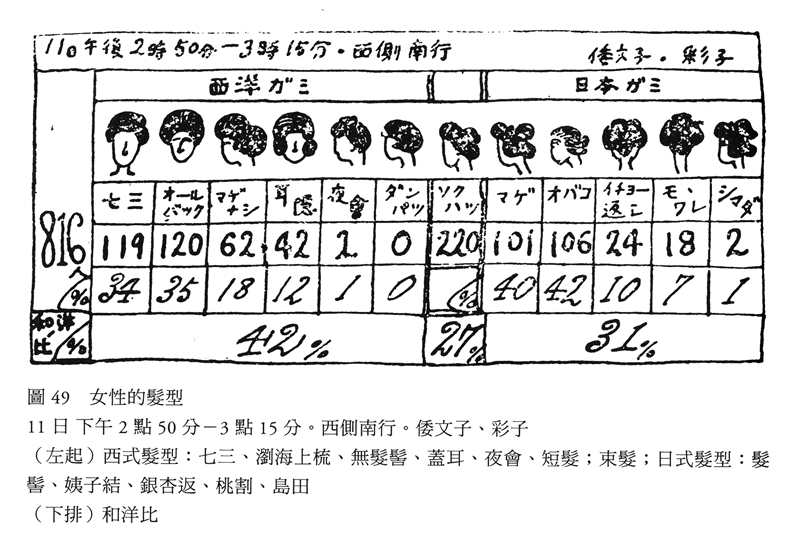 11日午後2時50分－3時15分・西側南行　倭文子・彩子
西洋ガミ　日本ガミ
七三　オールバック　マゲナシ　耳隠　夜會　ダンパツ　ソクハツ　マゲ　オバコ　イチョー返シ　モヽワレ　シマダ
816　119　120　62　42　2　0　220　101　106　24　18　2
%　34　35　18　12　1　0　%　40　42　10　7　1
和洋比%　42%　27%　31%
圖 49　女性的髮型
11 日 下午 2 點 50 分－3 點 15 分。西側南行。倭文子、彩子
（左起）西式髮型：七三、瀏海上梳、無髮髻、蓋耳、夜會、短髮；束髮；日式髮型：髮
髻、姨子結、銀杏返、桃割、島田
（下排）和洋比